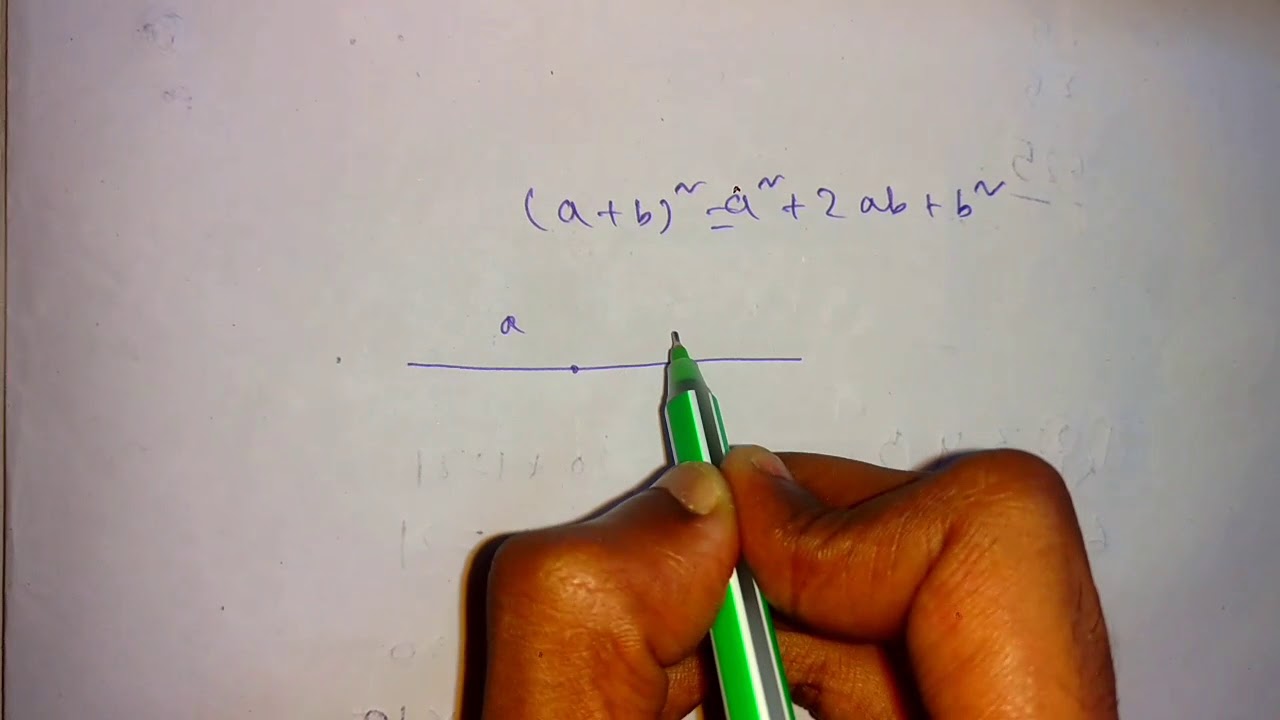 (a+b)² = a² + 2ab + b²
a